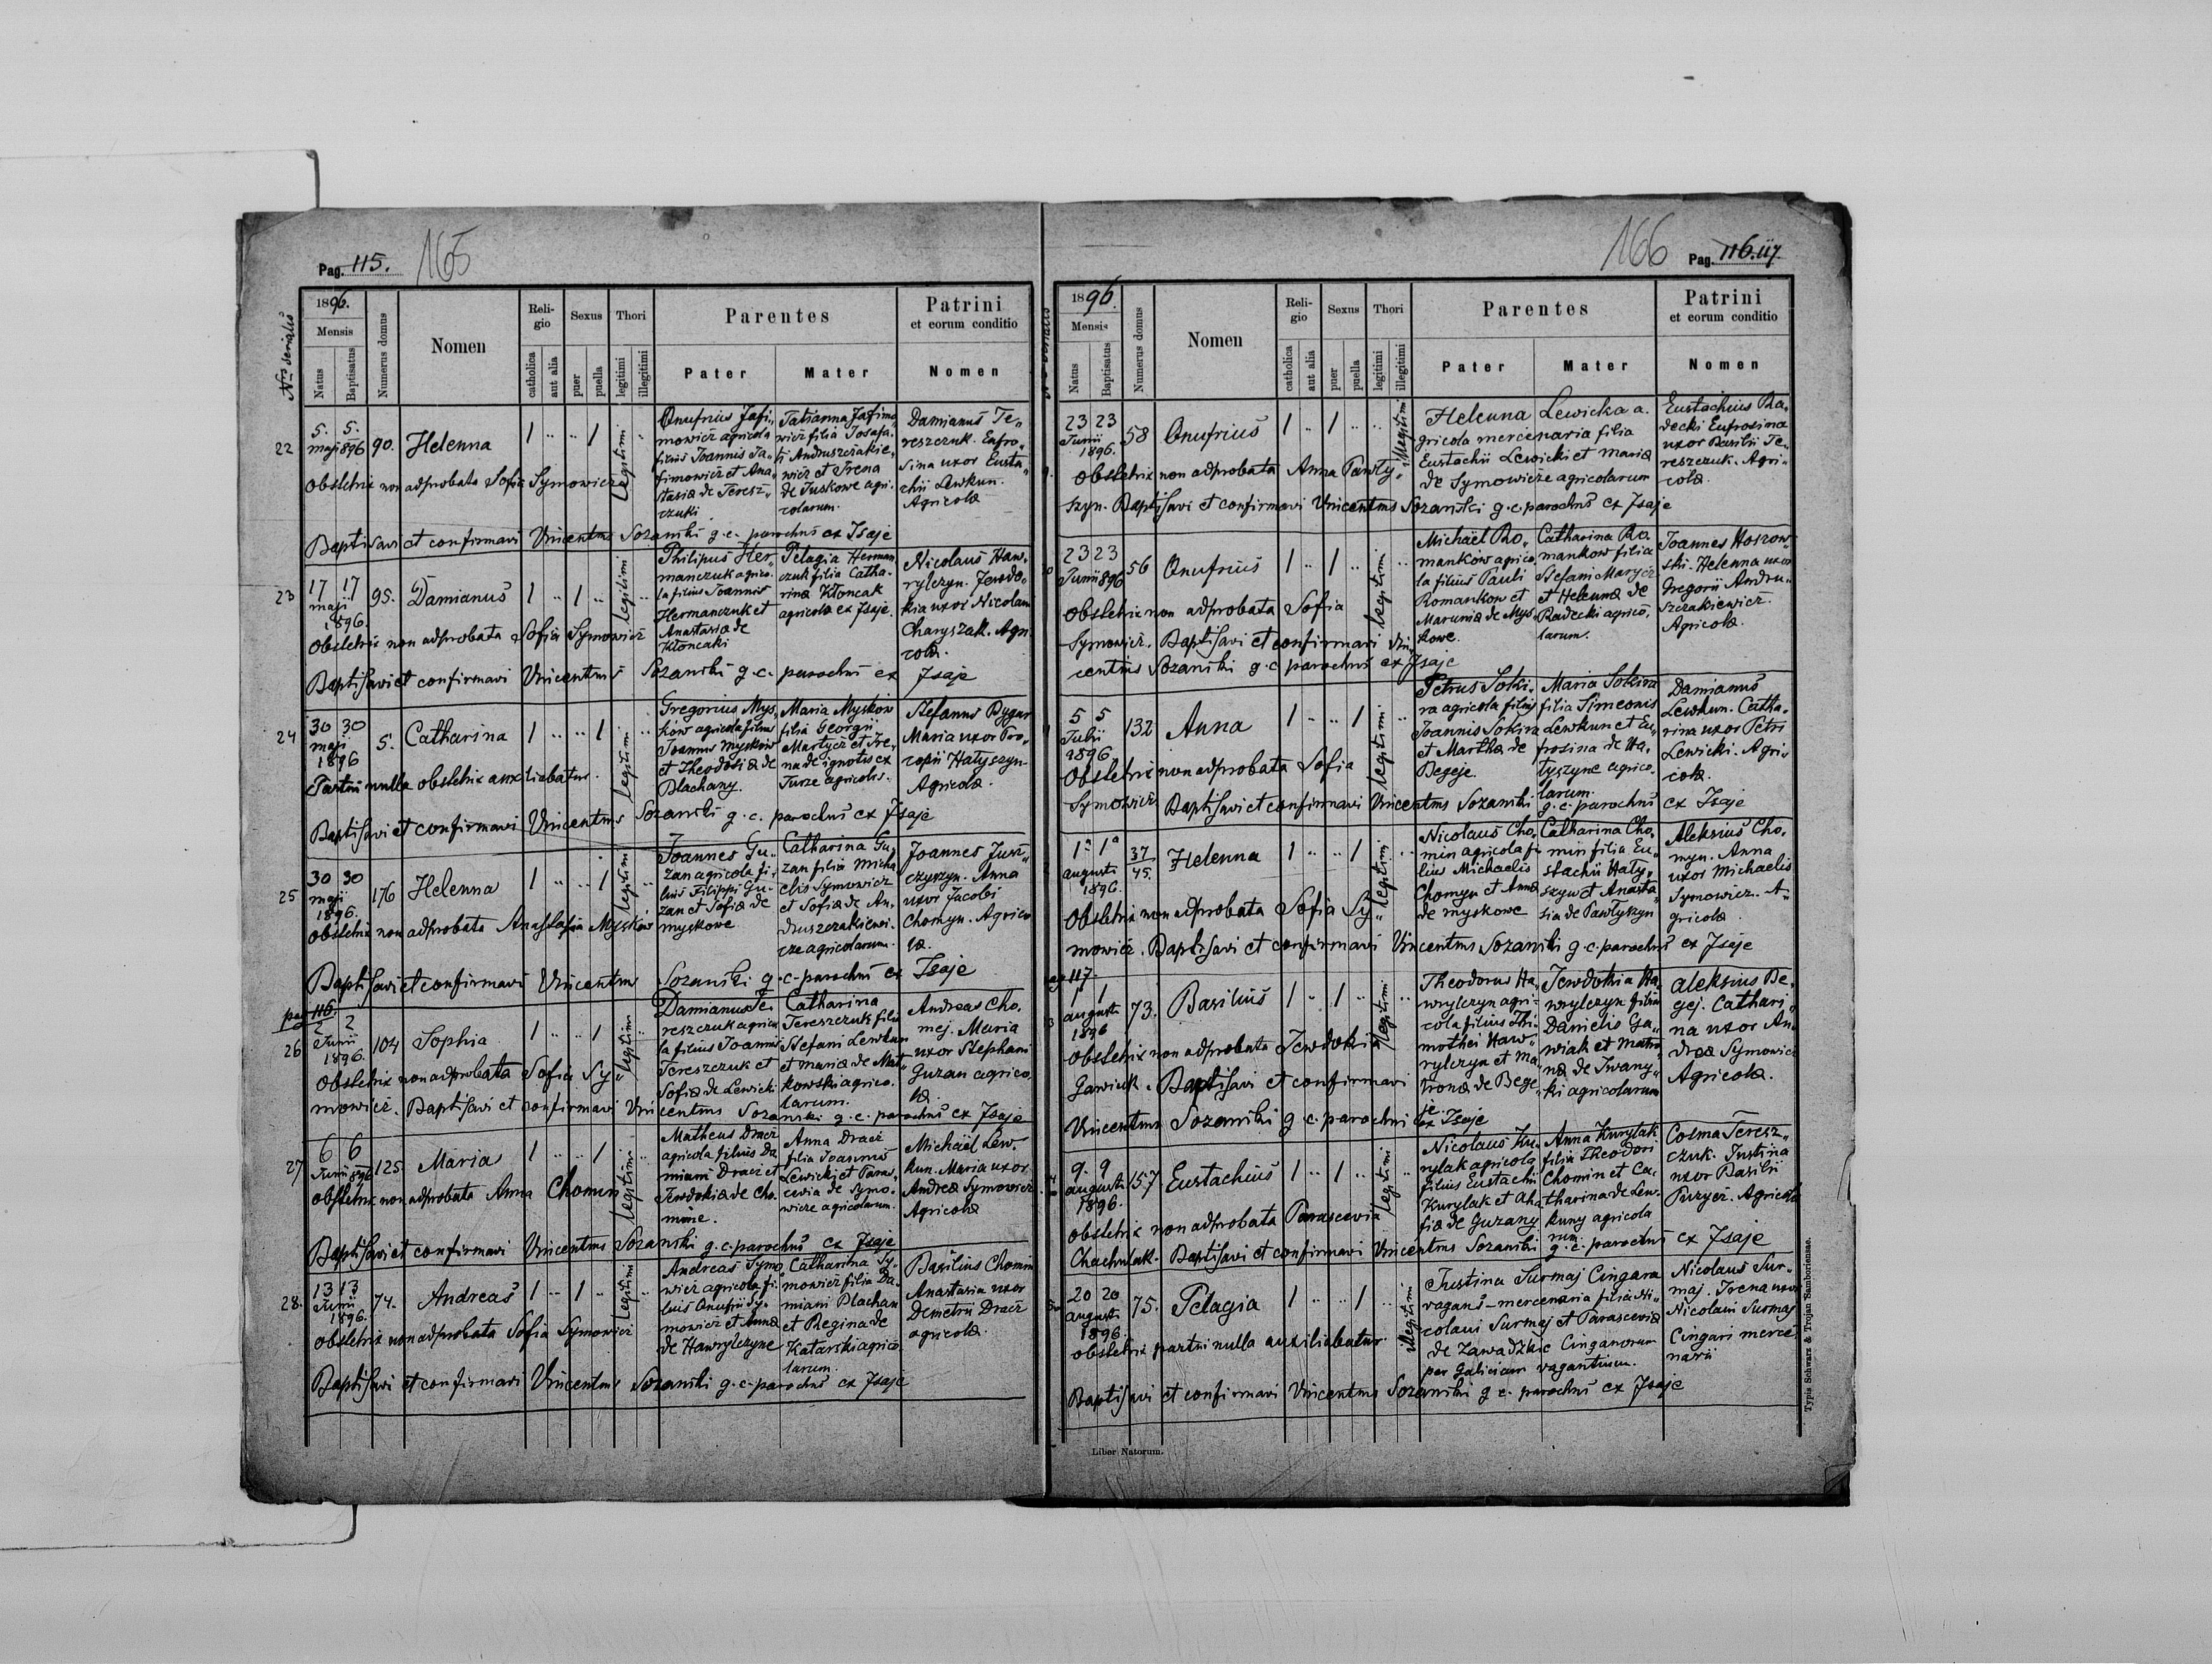 Pag. 115. 165
Nrus serialis
1896.
Mensis
Natus
Baptisatus
Numerus domus
Nomen
Religio
catholica
aut alia
Sexus
puer
puella
Thori
legitimi
illegitimi
Parentes
Pater
Mater
Patrini
et eorum conditio
Nomen
22
5. 5.
maji 1896
90.
Helenna
1 .. .. 1
legitimi
Onufrius Jafi„
mowicz agricola
filius Joannis Ja„
fimowicz et Ana„
stasiæ de Teresz„
czuki
Tatianna Jafimo„
wicz filia Josafa„
ti Andruszczakie„
wicz et Irena
de Juskowe agri„
colarum.
Damianus Te„
reszczuk. Eufro„
sina uxor Eusta„
chii Lewkun.
Agricolæ
Obstetrix non adprobata Sofia Symowicz
Baptisavi et confirmavi Vincentius Sozański g. c. parochus ex Isaje
23
17 17
maji
1896.
95.
Damianus
1 .. 1 ..
legitimi
Philipus Her„
manczuk agrico„
la filius Joannis
Hermanczuk et
Anastasiæ de
Kłoncaki
Pelagia Herman
czuk filia Catha„
rinæ Kłoncak
agricolæ ex Isaje.
Nicolaus Haw„
rylczyn. Jewdo„
kia uxor Nicolaus
Charyszak. Agri
colæ.
Obstetrix non adprobata Sofia Symowicz
Baptisavi et confirmavi Vincentius Sozański g. c. parochus ex Isaje
24
30 30
maji
1896
5.
Catharina
1 .. .. 1
legitimi
Gregorius Mys„
ków agricola filius
Joannis Myskow
et Theodosiæ de
Plachany.
Maria Myskow
filia Georgii
Martycz et Ire„
na de ignotis ex
Turze agricolis.
Stefanus Bygar
Maria uxor Pro„
copii Hatyszyn
Agricolæ.
Partui nulla obstetrix auxiliabatur.
Baptisavi et confirmavi Vincentius Sozański g. c. parochus ex Isaje
25
30 30
maji
1896.
176
Helenna
1 .. .. 1
legitimi
Joannes Gu„
zan agricola fi„
lius Filippi Gu„
zan et Sofiæ de
myskowe
Catharina Gu„
zan filia Micha
elis Symowicz
et Sofiæ de An„
druszczakiewi„
cze agricolarum.
Joannes Jusz„
czyszyn. Anna
uxor Jacobi
Chomyn. Agrico
læ.
Obstetrix non adprobata Anastasia Myskow
Baptisavi et confirmavi Vincentius Sozański g. c. parochus ex Isaje
pag 116.
26
2 2
Junii
1896.
104
Sophia
1 .. .. 1
legitimi
Damianus Te„
reszczuk agrico
la filius Joannis
Tereszczuk et
Sofiæ de Lewicki
Catharina
Tereszczuk filia
Stefani Lewkun
et Mariæ de Mat„
kowski agrico„
larum.
Andreas Cho„
mej. Maria
uxor Stephani
Guzan agrico„
læ.
Obstetrix non adprobata Sofia Sy„
mowicz. Baptisavi et confirmavi Vincentius Sozański g. c. parochus ex Isaje
27
6 6
Junii 1896
125.
Maria
1 .. .. 1
legitimi
Matheus Dracz
agricola filius Da
miani Dracz et
Jewdokiæ de Cho„
mine.
Anna Dracz
filia Joannis
Lewicki et Paras„
cevia de Symo„
wicze agricolarum.
Michaël Lew„
kun. Maria uxor
Andreæ Symowicz
Agricolæ
Obstetrix non adprobata Anna Chomin
Baptisavi et confirmavi Vincentius Sozański g. c. parochus ex Isaje
28.
13 13
Junii
1896.
74.
Andreas
1 .. 1 ..
legitimi
Andreas Symo„
wicz agricola fi„
lius Onufrii Sy„
mowicz et Annæ
de Hawrylczyne
Catharina Sy„
mowicz filia Da„
miani Plachan
et Regina de
Katarski agrico
larum.
Basilius Chomin
Anastasia uxor
Demetrii Dracz
agricolæ.
Obstetrix non adprobata Sofia Symowicz
Baptisavi et confirmavi Vincentius Sozański g. c. parochus ex Isaje
166 Pag. 116. 117.
1896.
Mensis
Natus
Baptisatus
Numerus domus
Nomen
Religio
catholica
aut alia
Sexus
puer
puella
Thori
legitimi
illegitimi
Parentes
Pater
Mater
Patrini
et eorum conditio
Nomen
23 23
Junii
1896.
58
Onufrius
1 .. 1 ..
illegitimi
Helenna Lewicka a„
gricola mercenaria filia
Eustachii Lewicki et Mariæ
de Symowicze agricolarum
Eustachius Ra„
decki Eufrosina
uxor Basilii Te„
reszczuk. Agri„
colæ.
Obstetrix non adprobata Anna Pawły„
szyn. Baptisavi et confirmavi Vincentius Sozański g. c. parochus ex Isaje
23 23
Junii 1896
56
Onufrius
1 .. 1 ..
legitimi
Michaël Ro„
manków agrico„
la filius Pauli
Romankow et
Maruniæ de Mys„
kowe.
Catharina Ro„
mankow filia
Stefani Marycz
et Helennæ de
Radecki agrico„
larum.
Joannes Hoszow„
ski. Helenna uxor
Gregorii Andru„
szczakiewicz.
Agricolæ.
Obstetrix non adprobata Sofia
Symowicz. Baptisavi et confirmavi Vin„
centius Sozański g. c. parochus ex Isaje
5 5
Julii
1896
132
Anna
1 .. .. 1
legitimi
Petrus Soki„
ra agricola filius
Joannis Sokira
et Marthæ de
Begeje.
Maria Sokira
filia Simeonis
Lewkun et Eu„
frosina de Ha„
tyszyne agrico„
larum.
Damianus
Lewkun. Catha„
rina uxor Petri
Lewicki. Agri„
colæ.
Obstetrix non adprobata Sofia
Symowicz Baptisavi et confirmavi Vincentius Sozański g. c. parochus ex Isaje
1a 1a
augusti
1896.
37
45.
Helenna
1 .. .. 1
legitimi
Nicolaus Cho„
min agricola fi
lius Michaelis
Chomyn et Annæ
de myskowe
Catharina Cho„
min filia Eu„
stachii Haty„
szyn et Anasta
sia de Pawłyszyn
Aleksius Cho„
myn. Anna
uxor Michaelis
Symowicz. A„
gricolæ.
Obstetrix non adprobata Sofia Sy„
mowicz. Baptisavi et confirmavi Vincentius Sozański g. c. parochus ex Isaje
117.
1 1
augusti
1896
73.
Basilius
1 .. 1 ..
legitimi
Theodorus Ha„
wrylczyn agri„
cola filius Thi„
mothei Haw„
rylczyn et Ma„
tronæ de Bege„
je
Jewdokia Ha„
wrylczyn filia
Danielis Ga„
wiak et Matro„
næ de Iwany„
ki agricolarum
Aleksius Be„
gej. Cathari„
na uxor An„
dreæ Symowicz
Agricolæ.
Obstetrix non adprobata Jewdokia
Gawiuk. Baptisavi et confirmavi
Vincentius Sozański g. c. parochus ex Isaje
9. 9
augusti
1896.
157
Eustachius
1 .. 1 ..
legitimi
Nicolaus Ku„
rylak agricola
filius Eustachii
Kurylak et Aha„
fiæ de Guzany
Anna Kurylak
filia Theodori
Chomin et Ca„
tharina de Lew„
kuny agricola
rum.
Cosma Teresz„
czuk. Justina
uxor Basilii
Puzycz. Agricolæ
Obstetrix non adprobata Parascevia
Chachulak. Baptisavi et confirmavi Vincentius Sozański g. c. parochus ex Isaje
20 20
augusti
1896.
75.
Pelagia
1 .. .. 1
illegitimi
Justina Surmaj Cingara
vagans – mercenaria filia Ni„
colai Surmaj et Parasceviæ
de Zawadzkie Cinganorum
per Galiciam vagantium.
Nicolaus Sur„
maj. Irena uxor
Nicolai Surmaj
Cingari merce„
narii
obstetrix partui nulla auxiliabatur
Baptisavi et confirmavi Vincentius Sozański g. c. parochus ex Isaje
Liber Natorum.
Typis Schwarz & Trojan Samboriensae.